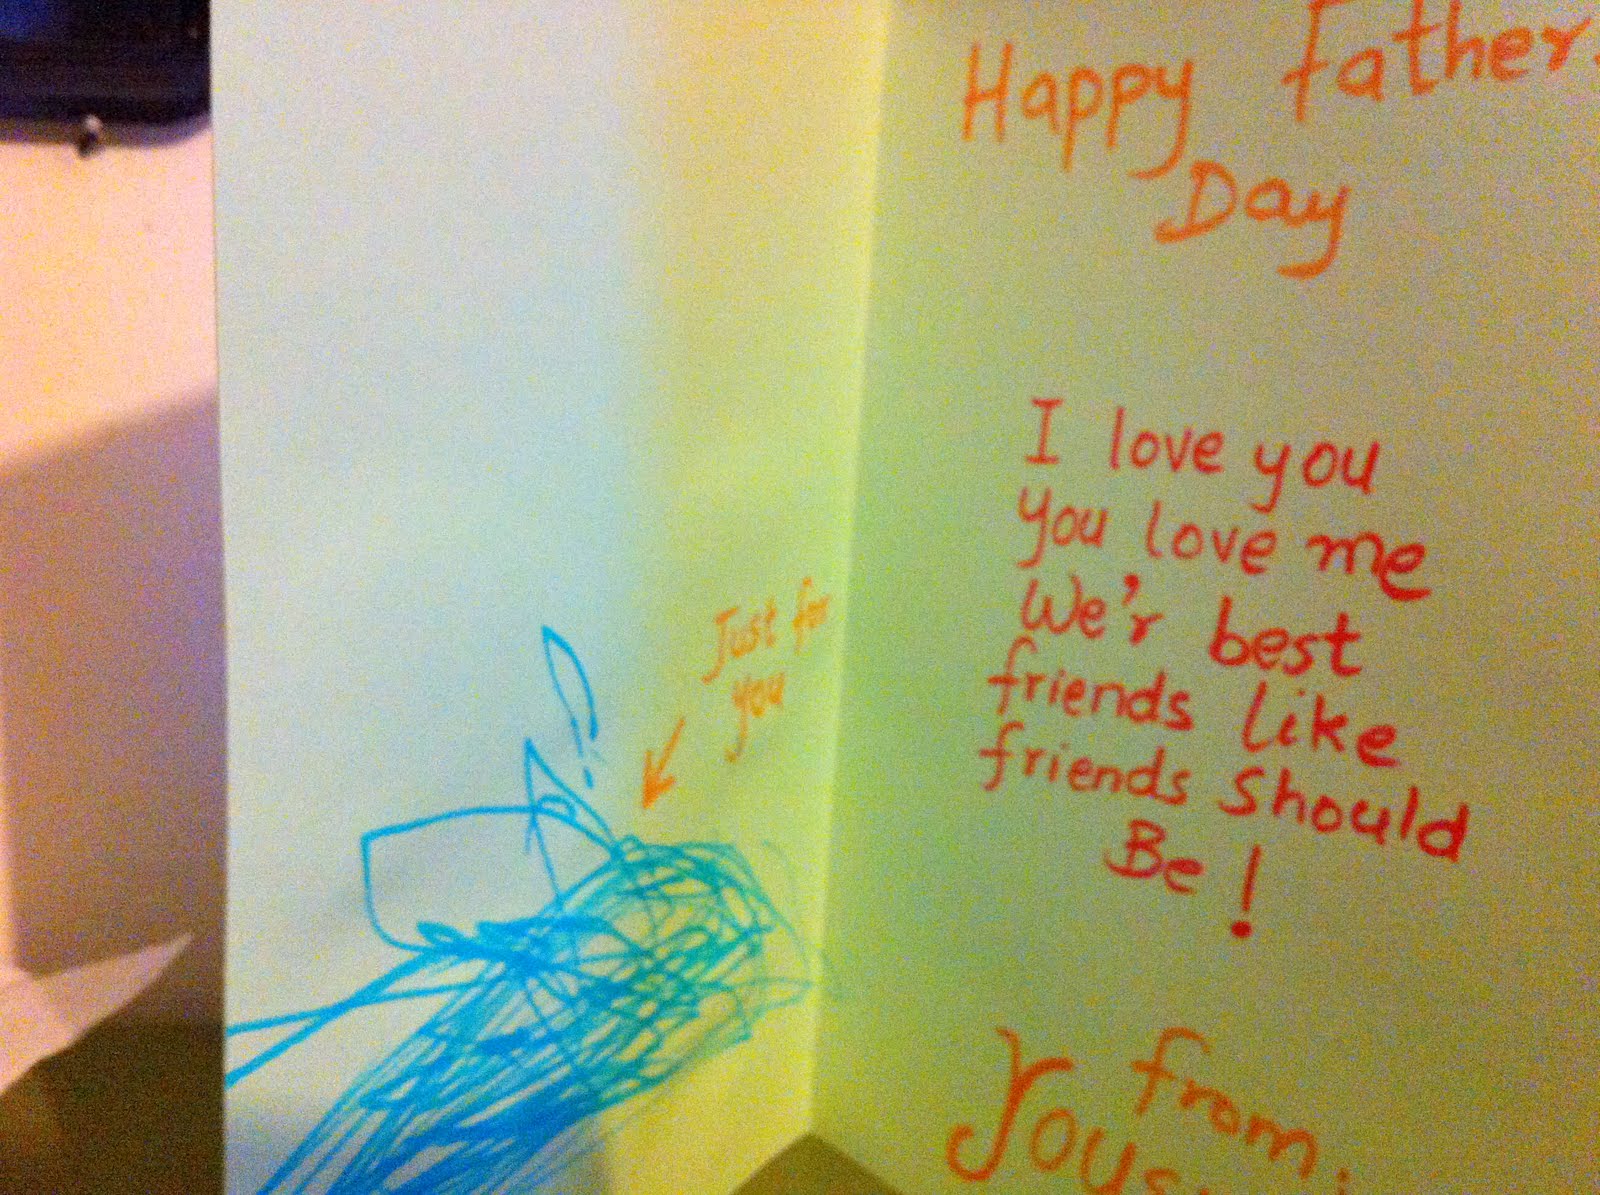 Just for
you
Happy Father
Day
I love you
You love me
We'r best
friends like
friends should
Be!
from: